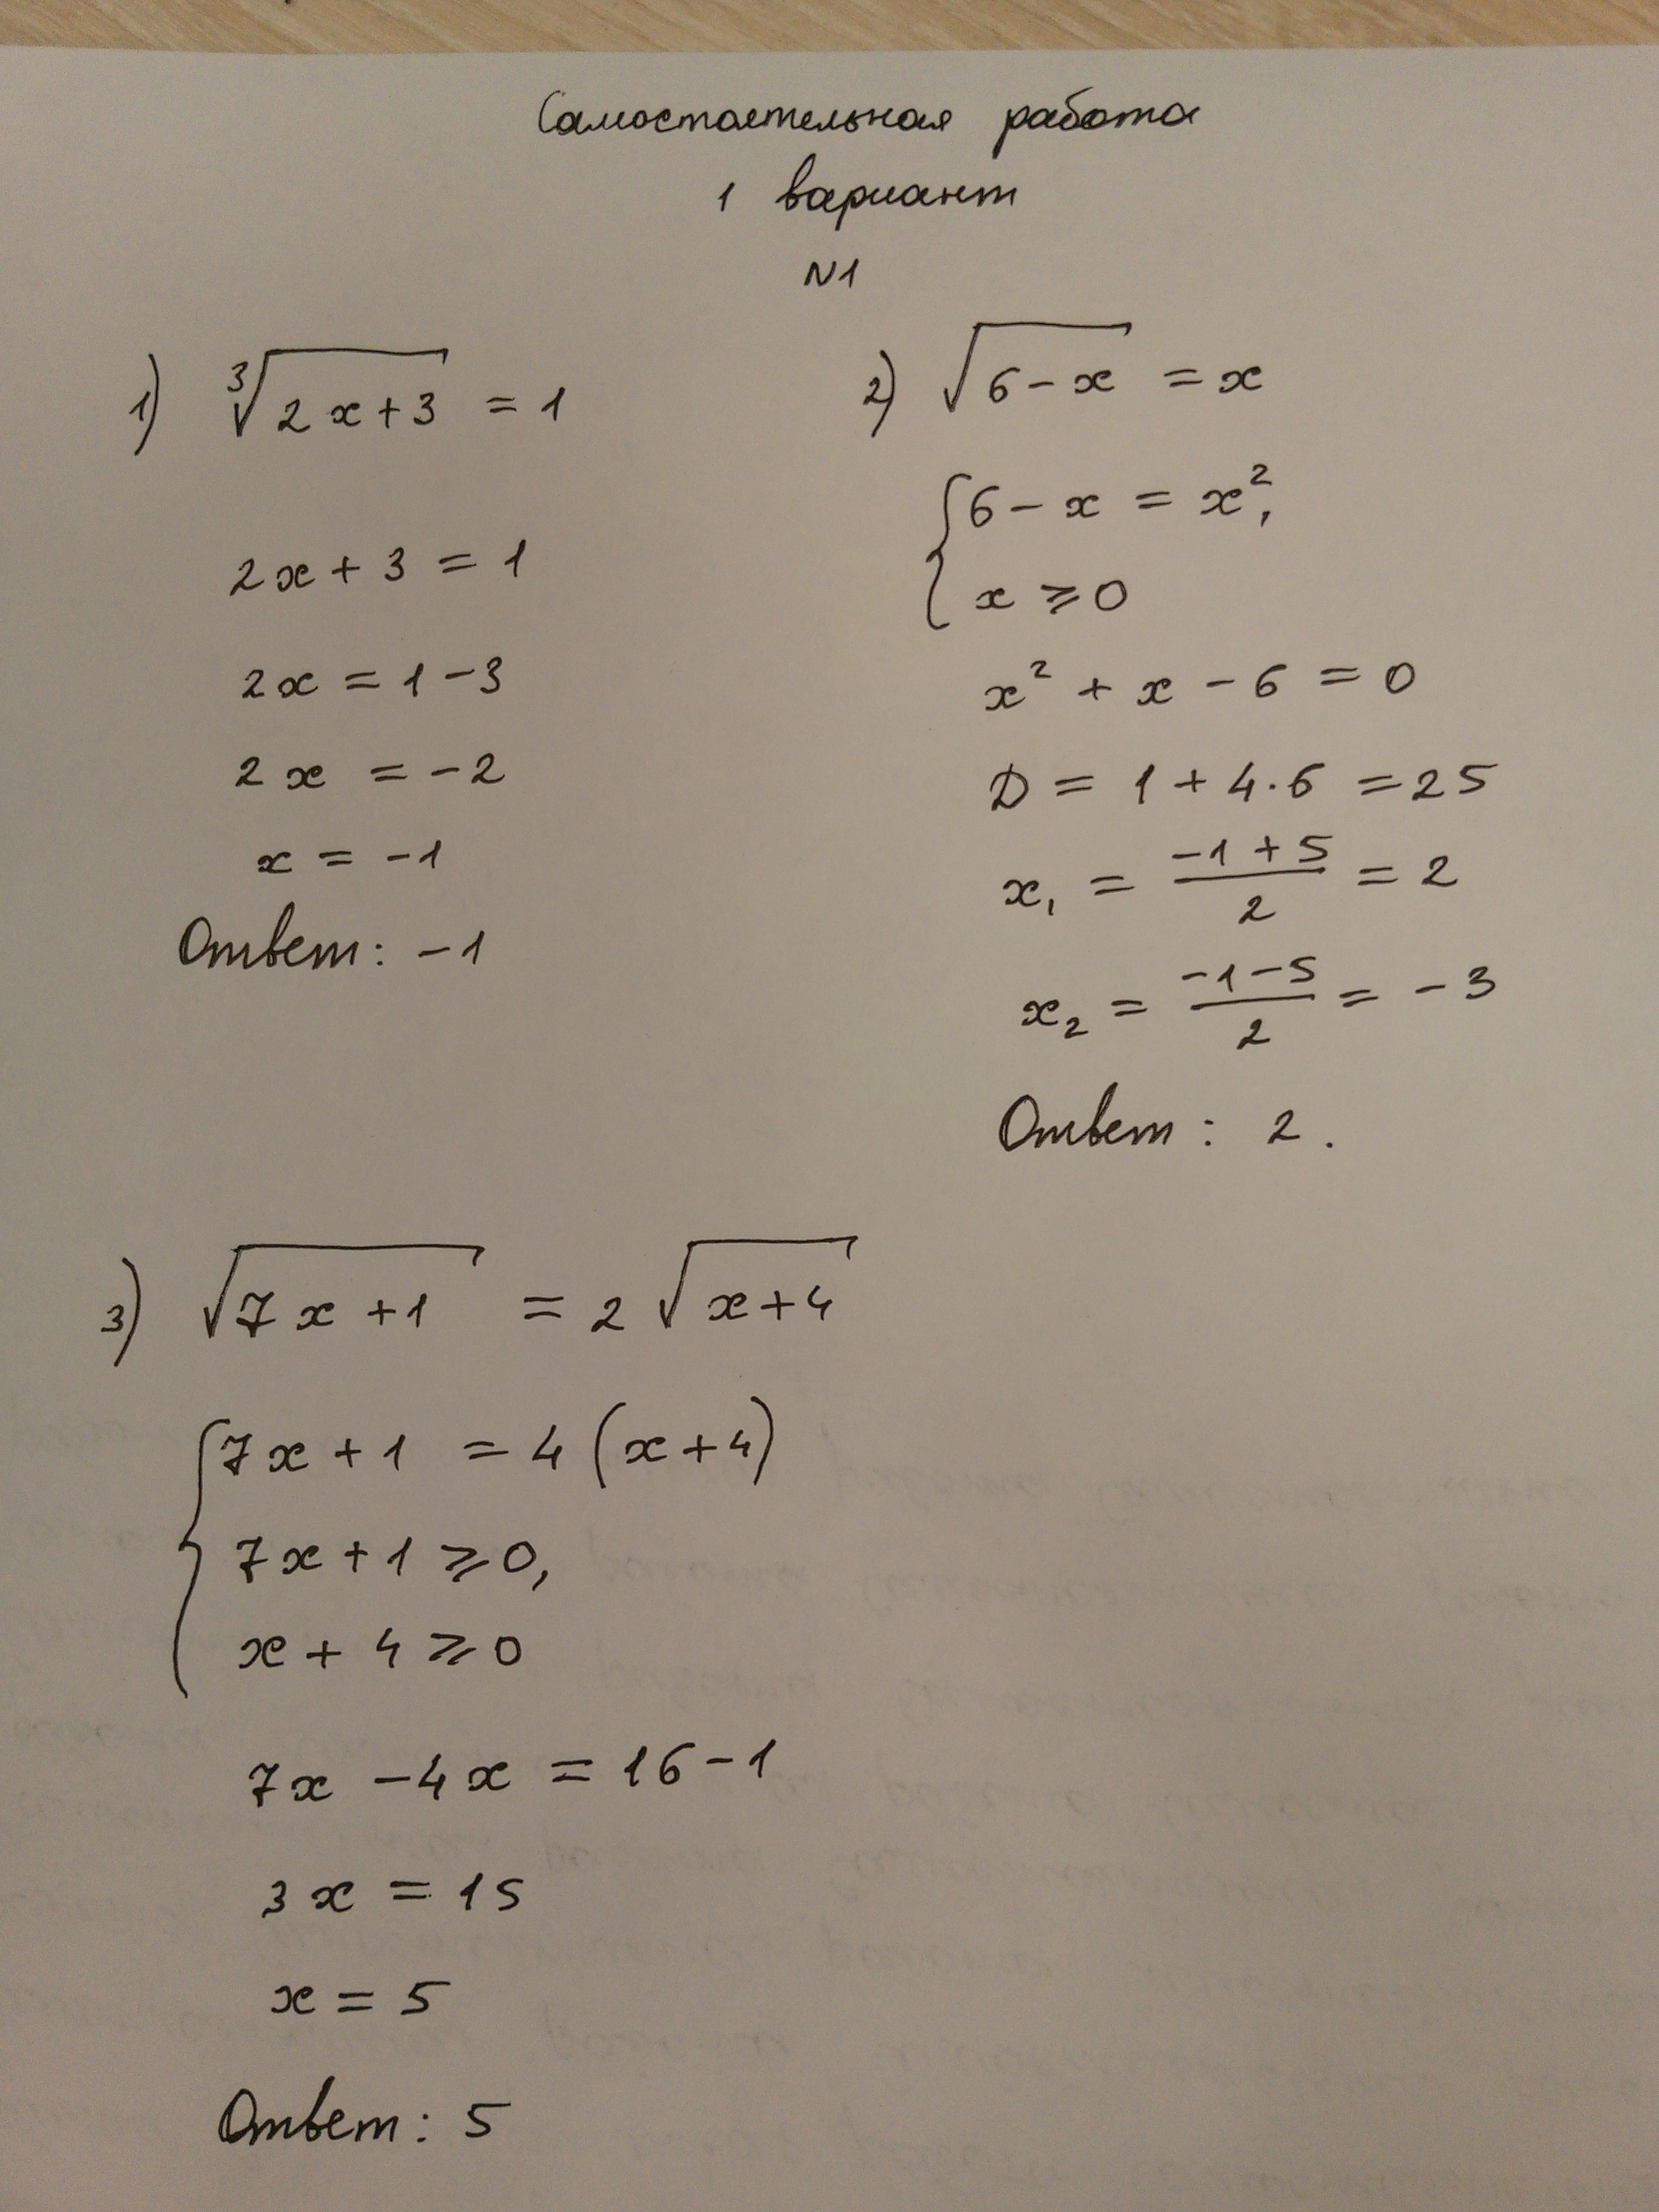 Самостоятельная работа
1 вариант
N1
1) ∛(2x+3) = 1
2x + 3 = 1
2x = 1 - 3
2x = -2
x = -1
Ответ: -1
2) √(6-x) = x
{ 6 - x = x²,
x ⩾ 0
x² + x - 6 = 0
D = 1 + 4·6 = 25
x₁ = (-1+5)/2 = 2
x₂ = (-1-5)/2 = -3
Ответ: 2.
3) √(7x+1) = 2√(x+4)
{ 7x + 1 = 4(x+4)
7x + 1 ⩾ 0,
x + 4 ⩾ 0
7x - 4x = 16 - 1
3x = 15
x = 5
Ответ: 5